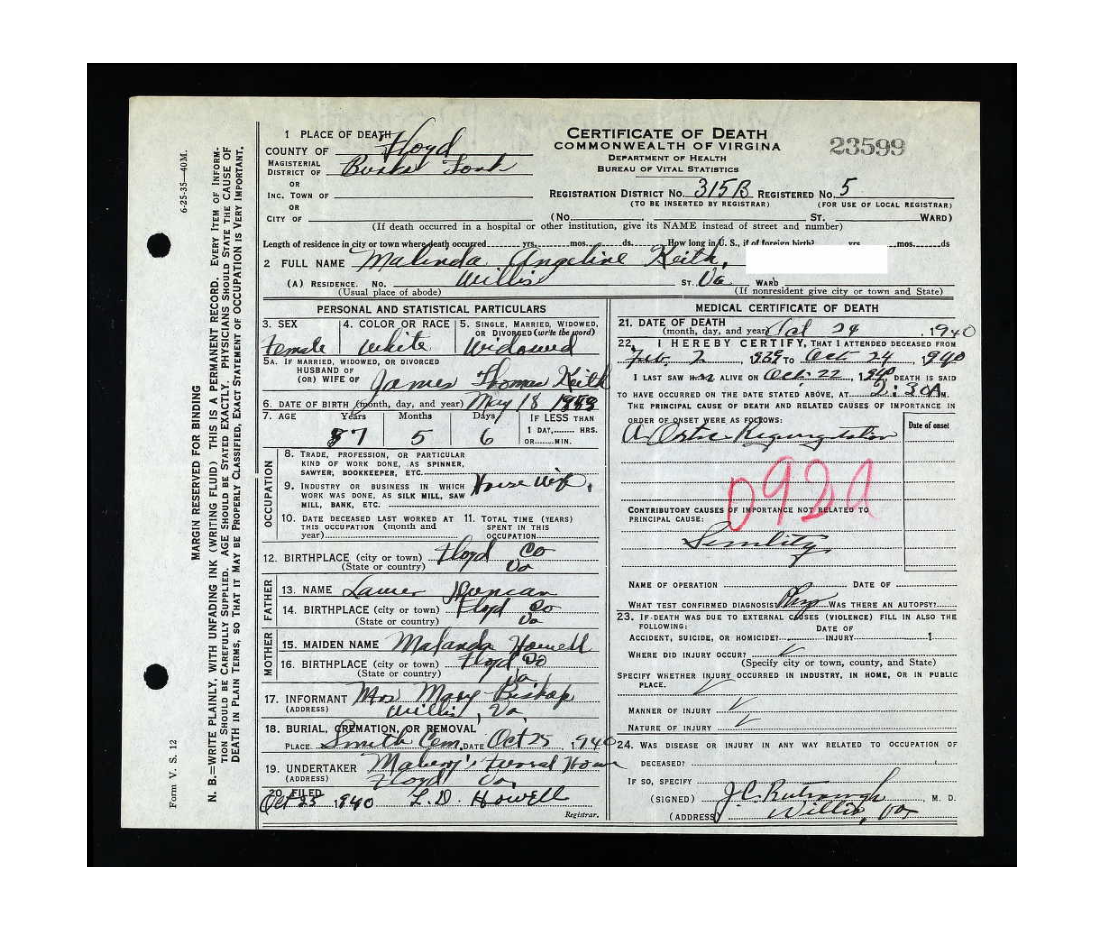 1 PLACE OF DEATH
COUNTY OF Floyd
MAGISTERIAL
DISTRICT OF Burks Fork
OR
INC. TOWN OF
OR
CITY OF
CERTIFICATE OF DEATH
COMMONWEALTH OF VIRGINIA
DEPARTMENT OF HEALTH
BUREAU OF VITAL STATISTICS
23599
REGISTRATION DISTRICT NO. 315B REGISTERED NO. 5
(TO BE INSERTED BY REGISTRAR) (FOR USE OF LOCAL REGISTRAR)
(No. ST. WARD)
(If death occurred in a hospital or other institution, give its NAME instead of street and number)
Length of residence in city or town where death occurred yrs. mos. ds. How long in U. S., if of foreign birth? yrs. mos. ds
2 FULL NAME Malinda Angeline Keith,
(A) RESIDENCE. No. Willis ST. Va WARD
(Usual place of abode) (If nonresident give city or town and State)
PERSONAL AND STATISTICAL PARTICULARS
3. SEX 4. COLOR OR RACE 5. SINGLE, MARRIED, WIDOWED,
OR DIVORCED (write the word)
female white Widowed
5A. IF MARRIED, WIDOWED, OR DIVORCED
HUSBAND OF
(OR) WIFE OF James Thomas Keith
6. DATE OF BIRTH (month, day, and year) May 18
7. AGE Years Months Days IF LESS THAN
1 DAY, HRS.
OR MIN.
87 5 6
OCCUPATION
8. TRADE, PROFESSION, OR PARTICULAR
KIND OF WORK DONE, AS SPINNER,
SAWYER, BOOKKEEPER, ETC.
9. INDUSTRY OR BUSINESS IN WHICH
WORK WAS DONE, AS SILK MILL, SAW
MILL, BANK, ETC.
House wife.
10. DATE DECEASED LAST WORKED AT
THIS OCCUPATION (month and
year)
11. TOTAL TIME (YEARS)
SPENT IN THIS
OCCUPATION
12. BIRTHPLACE (city or town) Floyd Co
(State or country) Va
FATHER
13. NAME Duncan
14. BIRTHPLACE (city or town) Floyd Co
(State or country) Va
MOTHER
15. MAIDEN NAME Malanda Howell
16. BIRTHPLACE (city or town) Floyd Co
(State or country) Va
17. INFORMANT Mrs Mary Bishop
(ADDRESS) Willis, Va
18. BURIAL, CREMATION, OR REMOVAL
PLACE Smith Cem. DATE Oct 25, 1940
19. UNDERTAKER Funeral Home
(ADDRESS) Floyd Va,
20. FILED
Oct 25, 1940 L. D. Howell
Registrar.
MEDICAL CERTIFICATE OF DEATH
21. DATE OF DEATH
(month, day, and year) Oct 24, 1940
22. I HEREBY CERTIFY, THAT I ATTENDED DECEASED FROM
Feb 2, 1939 TO Oct 24, 1940
I LAST SAW ALIVE ON Oct 22, 1940 DEATH IS SAID
TO HAVE OCCURRED ON THE DATE STATED ABOVE, AT 2:30 A M.
THE PRINCIPAL CAUSE OF DEATH AND RELATED CAUSES OF IMPORTANCE IN
ORDER OF ONSET WERE AS FOLLOWS:
Date of onset
Aortic Regurgitation
092a
CONTRIBUTORY CAUSES OF IMPORTANCE NOT RELATED TO
PRINCIPAL CAUSE:
Senility
NAME OF OPERATION DATE OF
WHAT TEST CONFIRMED DIAGNOSIS? WAS THERE AN AUTOPSY?
23. IF DEATH WAS DUE TO EXTERNAL CAUSES (VIOLENCE) FILL IN ALSO THE
FOLLOWING:
ACCIDENT, SUICIDE, OR HOMICIDE? DATE OF
INJURY 1
WHERE DID INJURY OCCUR?
(Specify city or town, county, and State)
SPECIFY WHETHER INJURY OCCURRED IN INDUSTRY, IN HOME, OR IN PUBLIC
PLACE.
MANNER OF INJURY
NATURE OF INJURY
24. WAS DISEASE OR INJURY IN ANY WAY RELATED TO OCCUPATION OF
DECEASED?
IF SO, SPECIFY
(SIGNED) J.C. M. D.
(ADDRESS) Willis, Va
6-25-35—40M.
MARGIN RESERVED FOR BINDING
Form V. S. 12
N. B.—WRITE PLAINLY, WITH UNFADING INK (WRITING FLUID) THIS IS A PERMANENT RECORD. EVERY ITEM OF INFORM-
TION SHOULD BE CAREFULLY SUPPLIED. AGE SHOULD BE STATED EXACTLY. PHYSICIANS SHOULD STATE THE CAUSE OF
DEATH IN PLAIN TERMS, SO THAT IT MAY BE PROPERLY CLASSIFIED, EXACT STATEMENT OF OCCUPATION IS VERY IMPORTANT.